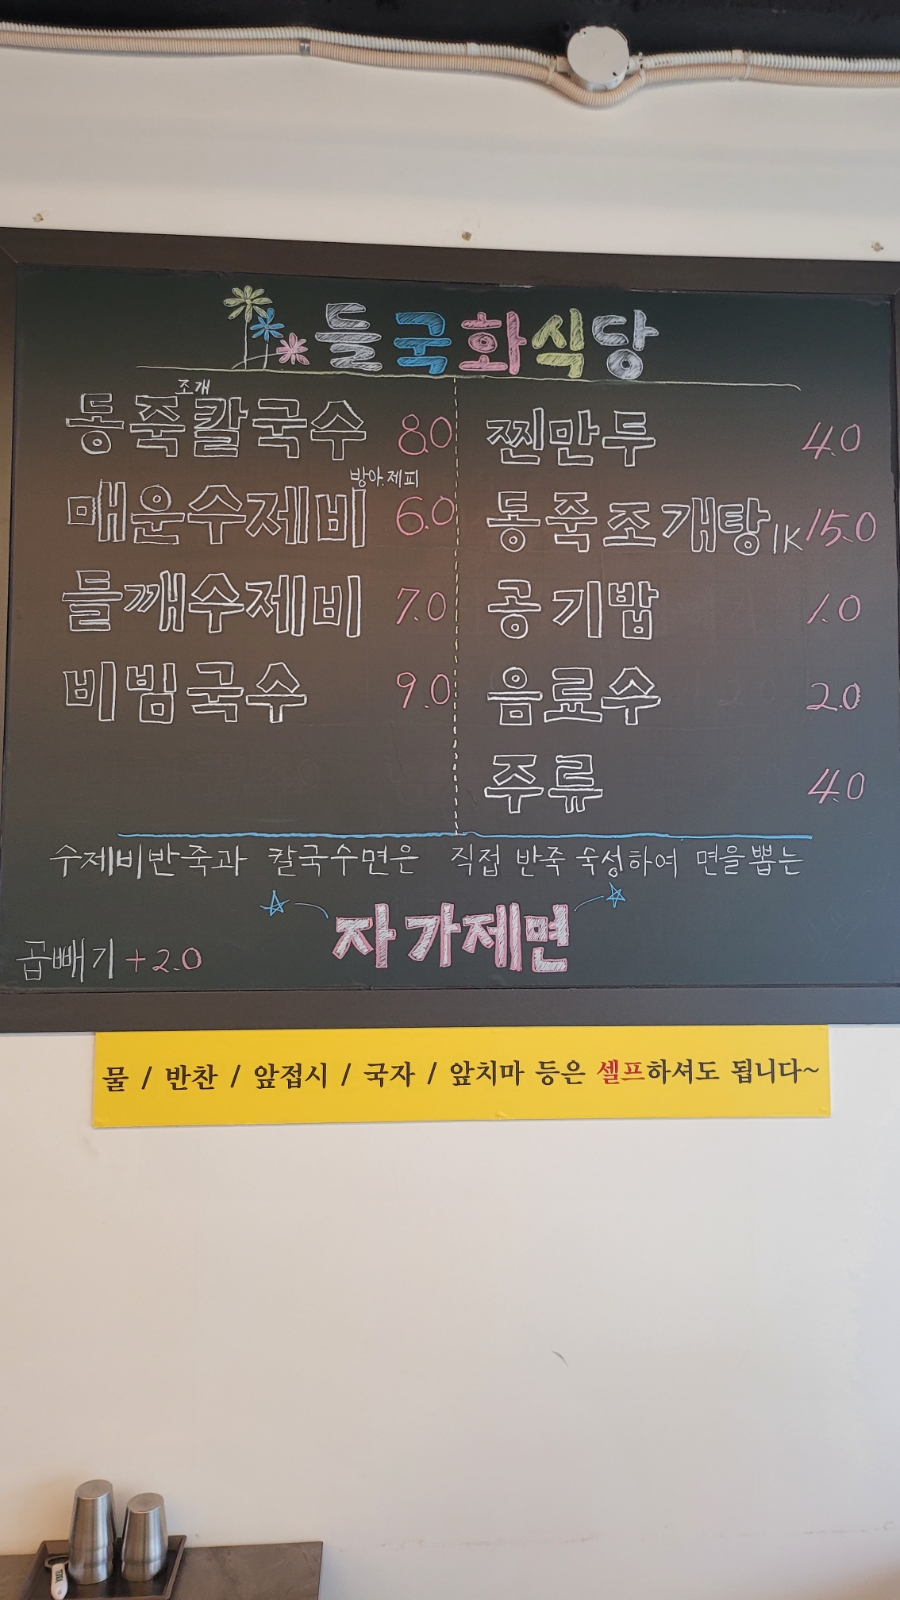 들국화식당
조개
동죽칼국수 8.0
방아.제피
매운수제비 6.0
들깨수제비 7.0
비빔국수 9.0
찐만두 4.0
동죽조개탕 1K 15.0
공기밥 1.0
음료수 2.0
주류 4.0
수제비반죽과 칼국수면은 직접 반죽 숙성하여 면을 뽑는
자가제면
곱빼기 +2.0
물 / 반찬 / 앞접시 / 국자 / 앞치마 등은 셀프하셔도 됩니다~